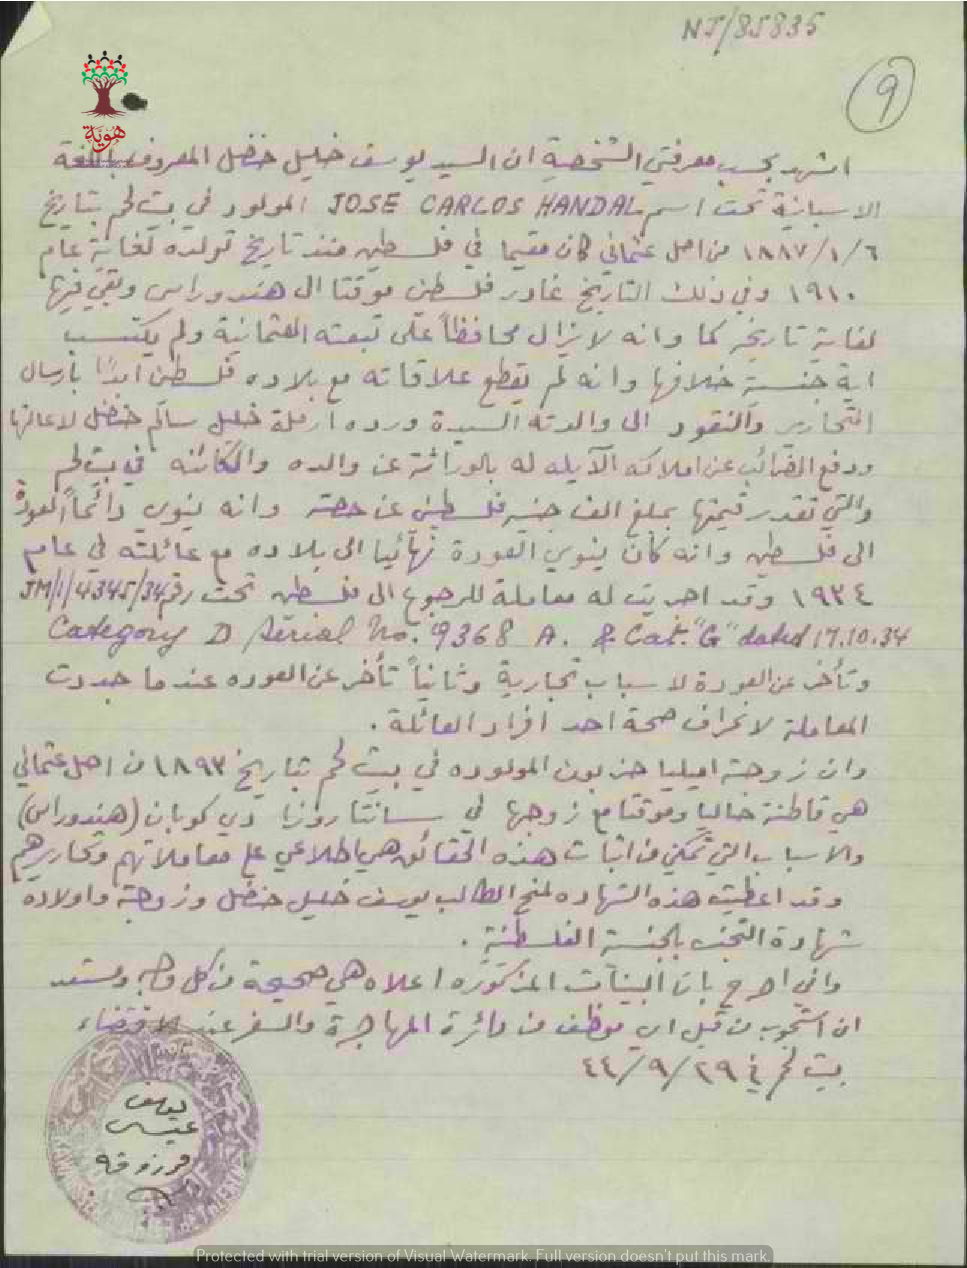 NJ/85835
9
هُوَيَّة
اشهد بحسب معرفتي الشخصية ان السيد يوسف خليل حنضل المعروف باللغة
الاسبانية تحت اسم JOSE CARLOS HANDAL المولود في بيت لحم بتاريخ
٦/١/١٨٨٧ من اصل عثماني كان مقيما في فلسطين منذ تاريخ تولده لغاية عام
١٩١٠ وفي ذلك التاريخ غادر فلسطين موقتا الى هندوراس وبقي فيها
لغاية تاريخه كما وانه لا يزال محافظاً على تبعته العثمانية ولم يكتسب
اية جنسية خلافها وانه لم يقطع علاقاته مع بلاده فلسطين ابدًا بارسال
التحارير والنقود الى والدته السيدة ورده ارملة خليل سالم حنضل لاعالتها
ودفع الضرائب عن املاكه الآيله له بالوراثة عن والده والكائنه في بيت لحم
والتي تقدر قيمتها بمبلغ الف جنيه فلسطيني عن حصته وانه ينوي دائماً العودة
الى فلسطين وانه كان ينوي العودة نهائيا الى بلاده مع عائلته في عام
١٩٣٤ وقد اجريت له معاملة للرجوع الى فلسطين تحت رقم JM/1/4345/34
Category D Serial No. 9368 A. & Cat. "G" dated 17.10.34
وتأخر عن العودة لاسباب تجارية وثانياً تأخر عن العوده عندما جددت
المعاملة لانحراف صحة احد افراد العائلة .
وان زوجته اميليا حزبون المولوده في بيت لحم بتاريخ ١٨٩٣ من اصل عثماني
هي قاطنة حالياً وموقتا مع زوجها في سانتا روزا دي كوبان (هندوراس)
والاسباب التي تمكني من اثبات هذه الحقائق هي اطلاعي على معاملاتهم وتحاريرهم
وقد اعطيت هذه الشهاده لمنح الطالب يوسف خليل حنضل وزوجته واولاده
شهادة التجنس بالجنسية الفلسطينية .
واني اصرح بان البينات المذكوره اعلاه هي صحيحة من كل وجه ومستعد
ان استجوب من قبل اي موظف من دائرة المهاجرة والسفر عند الاقتضاء
بيت لحم في ٢٩/٩/٤٤
يوسف
عيسى
مرزوقه
Protected with trial version of Visual Watermark. Full version doesn't put this mark.